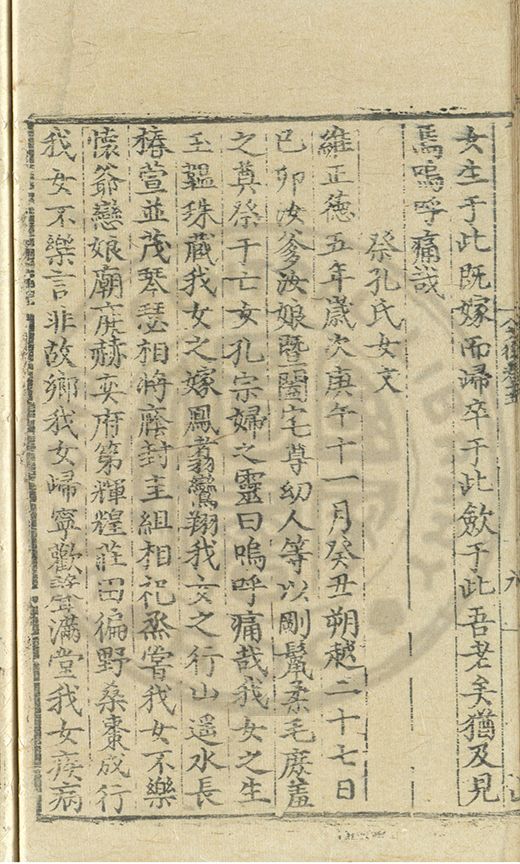 女生于此既嫁而歸卒于此斂于此吾老矣猶及見
焉嗚呼痛哉
祭孔氏女文
維正德五年歲次庚午十一月癸丑朔越二十七日
己卯汝爹汝娘暨闔宅尊幼人等以剛鬣柔毛庶羞
之奠祭于亡女孔宗婦之靈曰嗚呼痛哉我女之生
玉韞珠藏我女之嫁鳳翥鸞翔我女之行山遥水長
椿萱並茂琴瑟相將藤封主組相祀烝嘗我女不樂
懷爺戀娘廟庭赫奕府第輝煌莊田徧野桑棗成行
我女不樂言非故鄉我女歸寧歡聲滿堂我女疾病